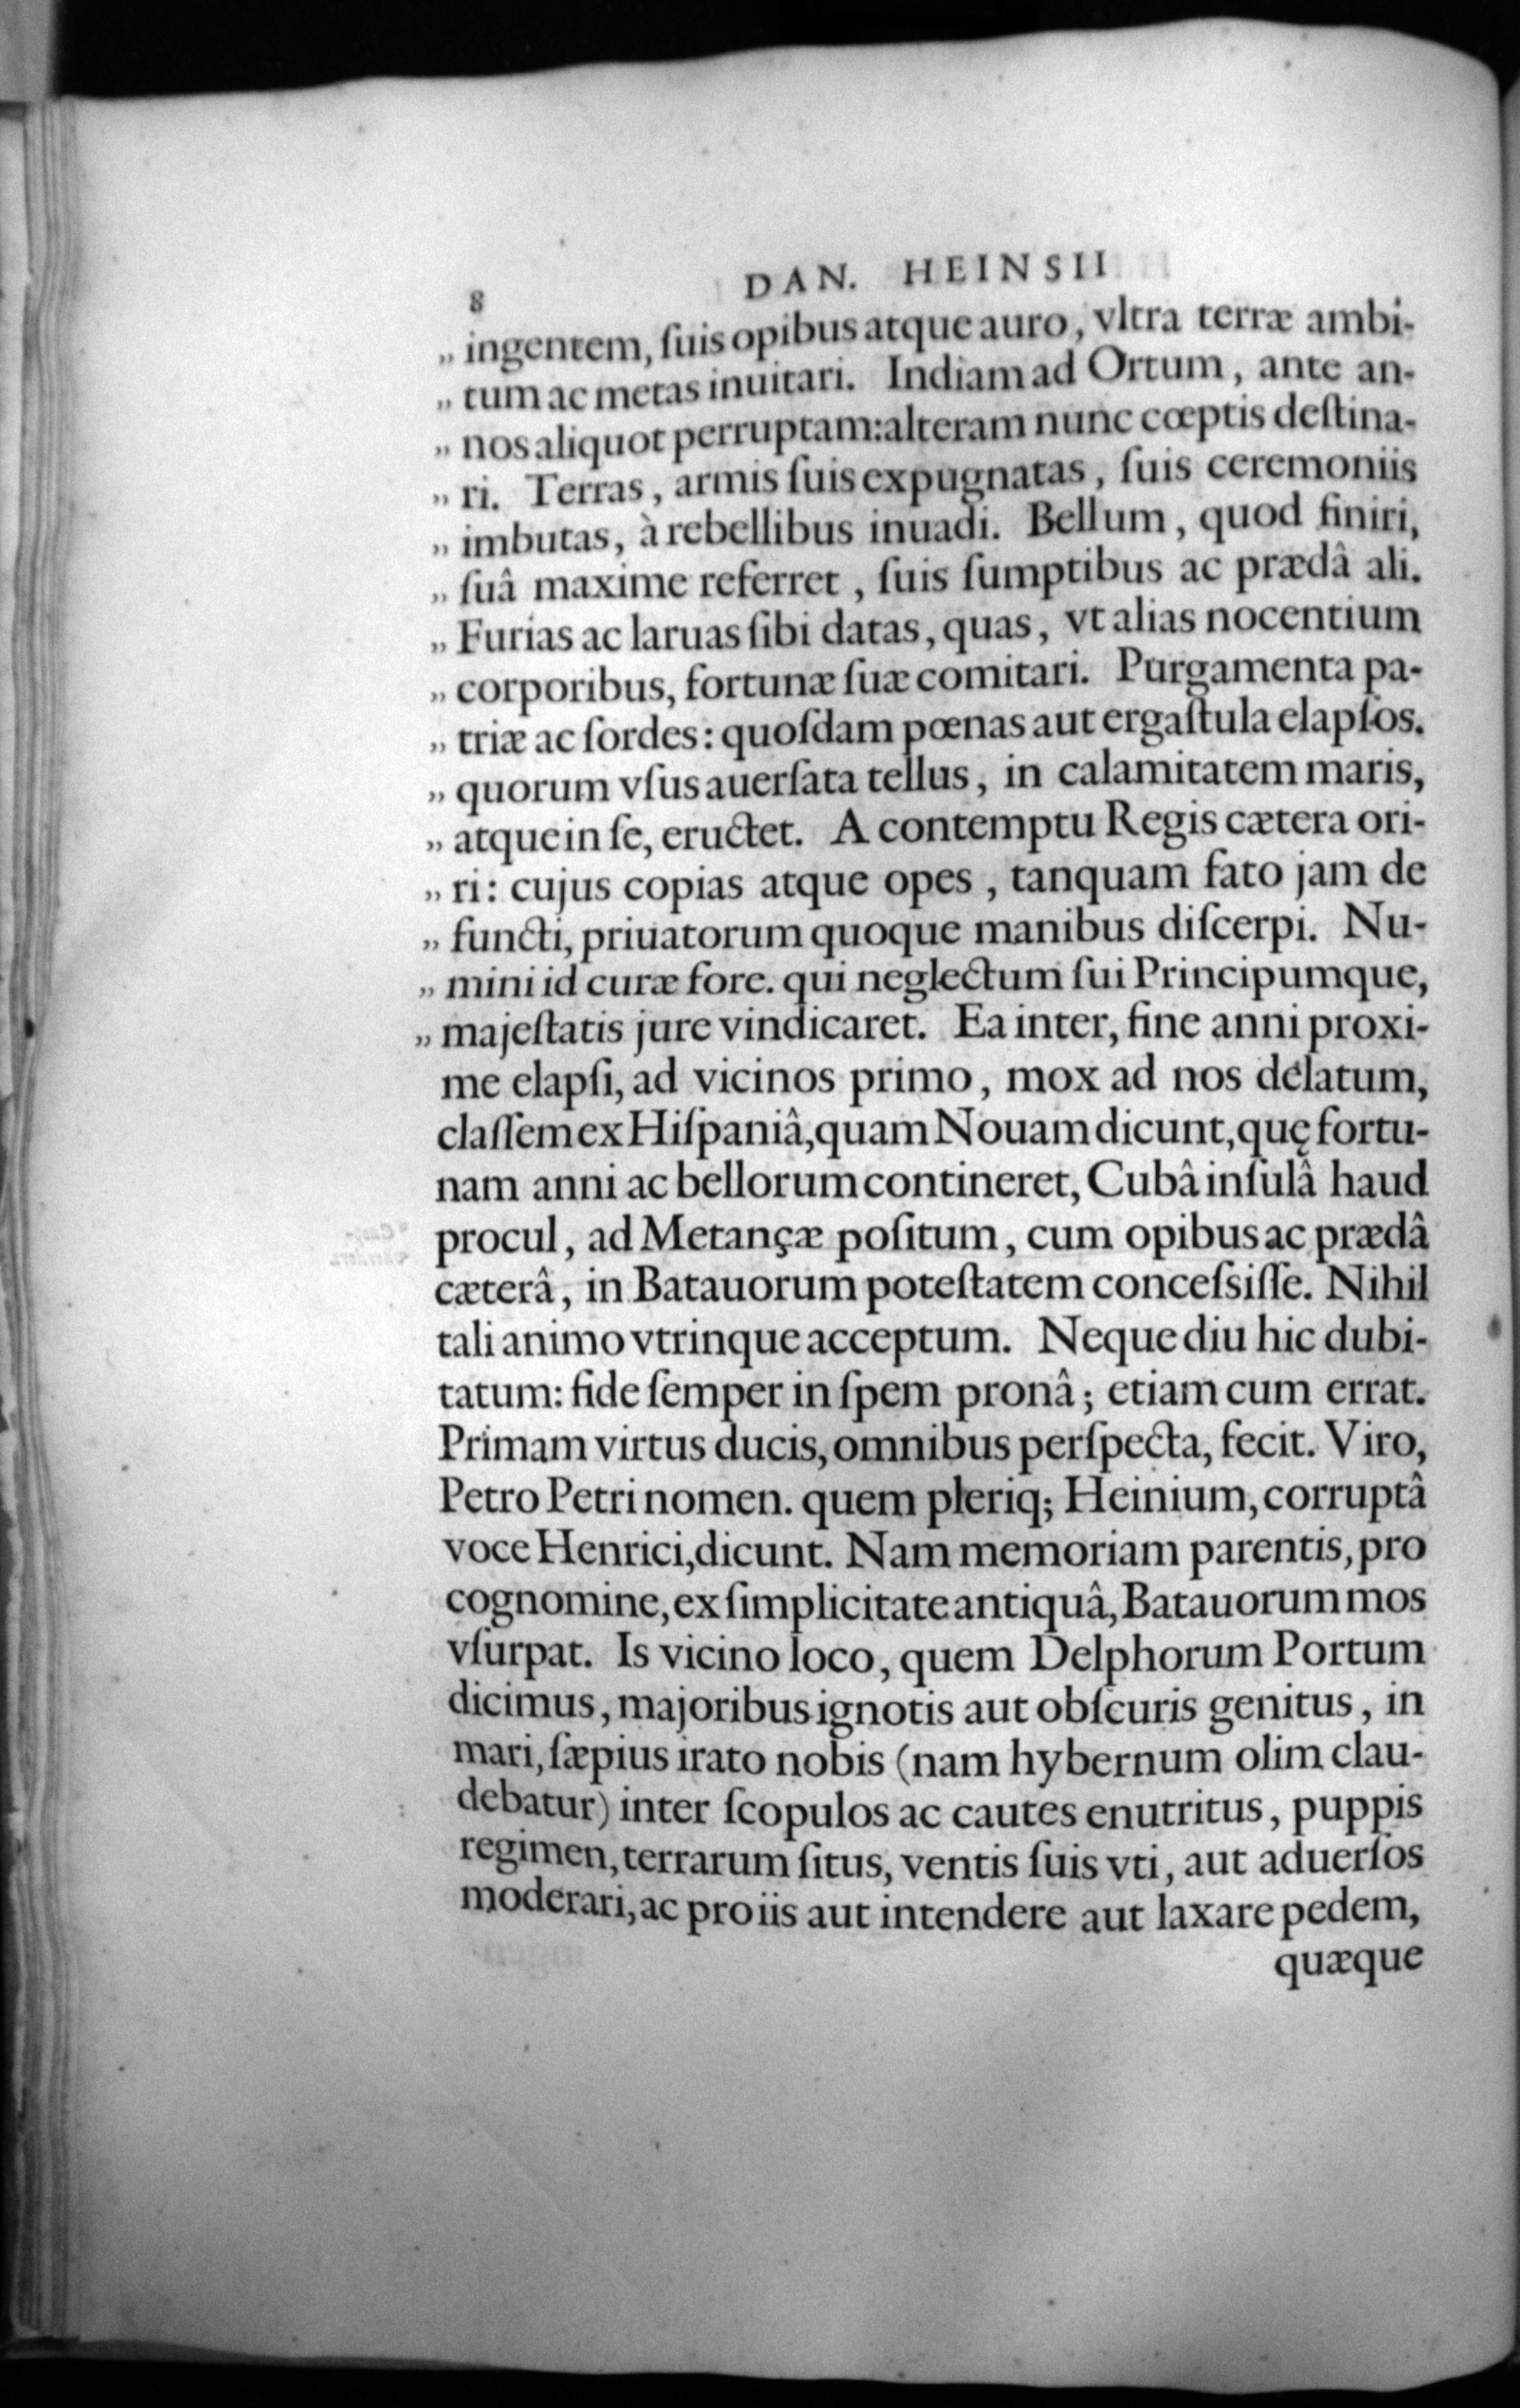 8 DAN. HEINSII
„ ingentem, ſuis opibus atque auro, vltra terræ ambi-
„ tum ac metas inuitari. Indiam ad Ortum, ante an-
„ nos aliquot perruptam: alteram nunc cœptis deſtina-
„ ri. Terras, armis ſuis expugnatas, ſuis ceremoniis
„ imbutas, à rebellibus inuadi. Bellum, quod finiri,
„ ſuâ maxime referret, ſuis ſumptibus ac prædâ ali.
„ Furias ac laruas ſibi datas, quas, vt alias nocentium
„ corporibus, fortunæ ſuæ comitari. Purgamenta pa-
„ triæ ac ſordes: quoſdam pœnas aut ergaſtula elapſos.
„ quorum vſus auerſata tellus, in calamitatem maris,
„ atque in ſe, eructet. A contemptu Regis cætera ori-
„ ri: cujus copias atque opes, tanquam fato jam de
„ functi, priuatorum quoque manibus diſcerpi. Nu-
„ mini id curæ fore. qui neglectum ſui Principumque,
„ majeſtatis jure vindicaret. Ea inter, fine anni proxi-
me elapſi, ad vicinos primo, mox ad nos delatum,
claſſem ex Hiſpaniâ, quam Nouam dicunt, quę fortu-
nam anni ac bellorum contineret, Cubâ inſulâ haud
procul, ad Metançæ poſitum, cum opibus ac prædâ
cæterâ, in Batauorum poteſtatem conceſsiſſe. Nihil
tali animo vtrinque acceptum. Neque diu hic dubi-
tatum: fide ſemper in ſpem pronâ; etiam cum errat.
Primam virtus ducis, omnibus perſpecta, fecit. Viro,
Petro Petri nomen. quem pleriq; Heinium, corruptâ
voce Henrici, dicunt. Nam memoriam parentis, pro
cognomine, ex ſimplicitate antiquâ, Batauorum mos
vſurpat. Is vicino loco, quem Delphorum Portum
dicimus, majoribus ignotis aut obſcuris genitus, in
mari, ſæpius irato nobis (nam hybernum olim clau-
debatur) inter ſcopulos ac cautes enutritus, puppis
regimen, terrarum ſitus, ventis ſuis vti, aut aduerſos
moderari, ac pro iis aut intendere aut laxare pedem,
quæque